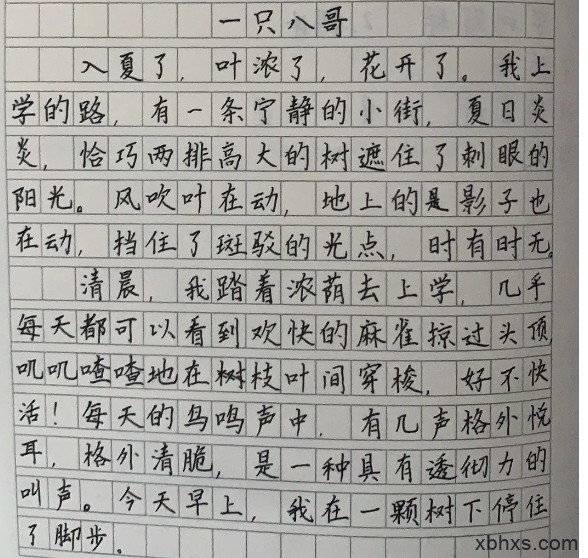 一只八哥
入夏了，叶浓了，花开了。我上
学的路，有一条宁静的小街，夏日炎
炎，恰巧两排高大的树遮住了刺眼的
阳光。风吹叶在动，地上的是影子也
在动，挡住了斑驳的光点，时有时无。
清晨，我踏着浓荫去上学，几乎
每天都可以看到欢快的麻雀掠过头顶，
叽叽喳喳地在树枝叶间穿梭，好不快
活！每天的鸟鸣声中，有几声格外悦
耳，格外清脆，是一种具有透彻力的
叫声。今天早上，我在一颗树下停住
了脚步。
xbhxs.com